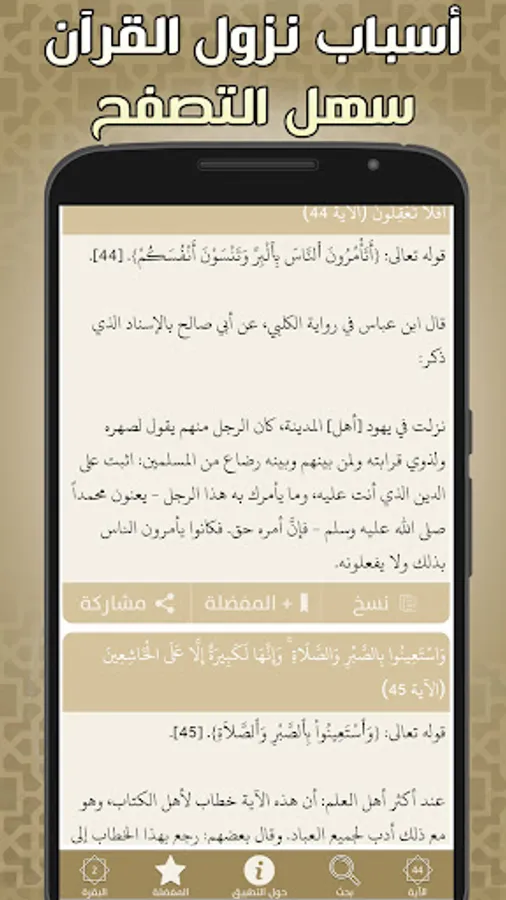 أسباب نزول القرآن
سهل التصفح
أفلا تعقلون (الآية 44)
قوله تعالى: {أَتَأْمُرُونَ ٱلنَّاسَ بِٱلْبِرِّ وَتَنْسَوْنَ أَنْفُسَكُمْ}. [44].
قال ابن عباس في رواية الكلبي، عن أبي صالح بالإسناد الذي
ذكر:
نزلت في يهود [أهل] المدينة، كان الرجل منهم يقول لصهره
ولذوي قرابته ولمن بينهم وبينه رضاع من المسلمين: اثبت على
الدين الذي أنت عليه، وما يأمرك به هذا الرجل - يعنون محمداً
صلى الله عليه وسلم - فإنَّ أمره حق. فكانوا يأمرون الناس
بذلك ولا يفعلونه.
نسخ + المفضلة مشاركة
وَاسْتَعِينُوا بِالصَّبْرِ وَالصَّلَاةِ ۚ وَإِنَّهَا لَكَبِيرَةٌ إِلَّا عَلَى الْخَاشِعِينَ
(الآية 45)
قوله تعالى: {وَٱسْتَعِينُواْ بِٱلصَّبْرِ وَٱلصَّلاَةِ}. [45].
عند أكثر أهل العلم: أن هذه الآية خطاب لأهل الكتاب، وهو
مع ذلك أدب لجميع العباد. وقال بعضهم: رجع بهذا الخطاب إلى
44 2
الآية بحث حول التطبيق المفضلة البقرة